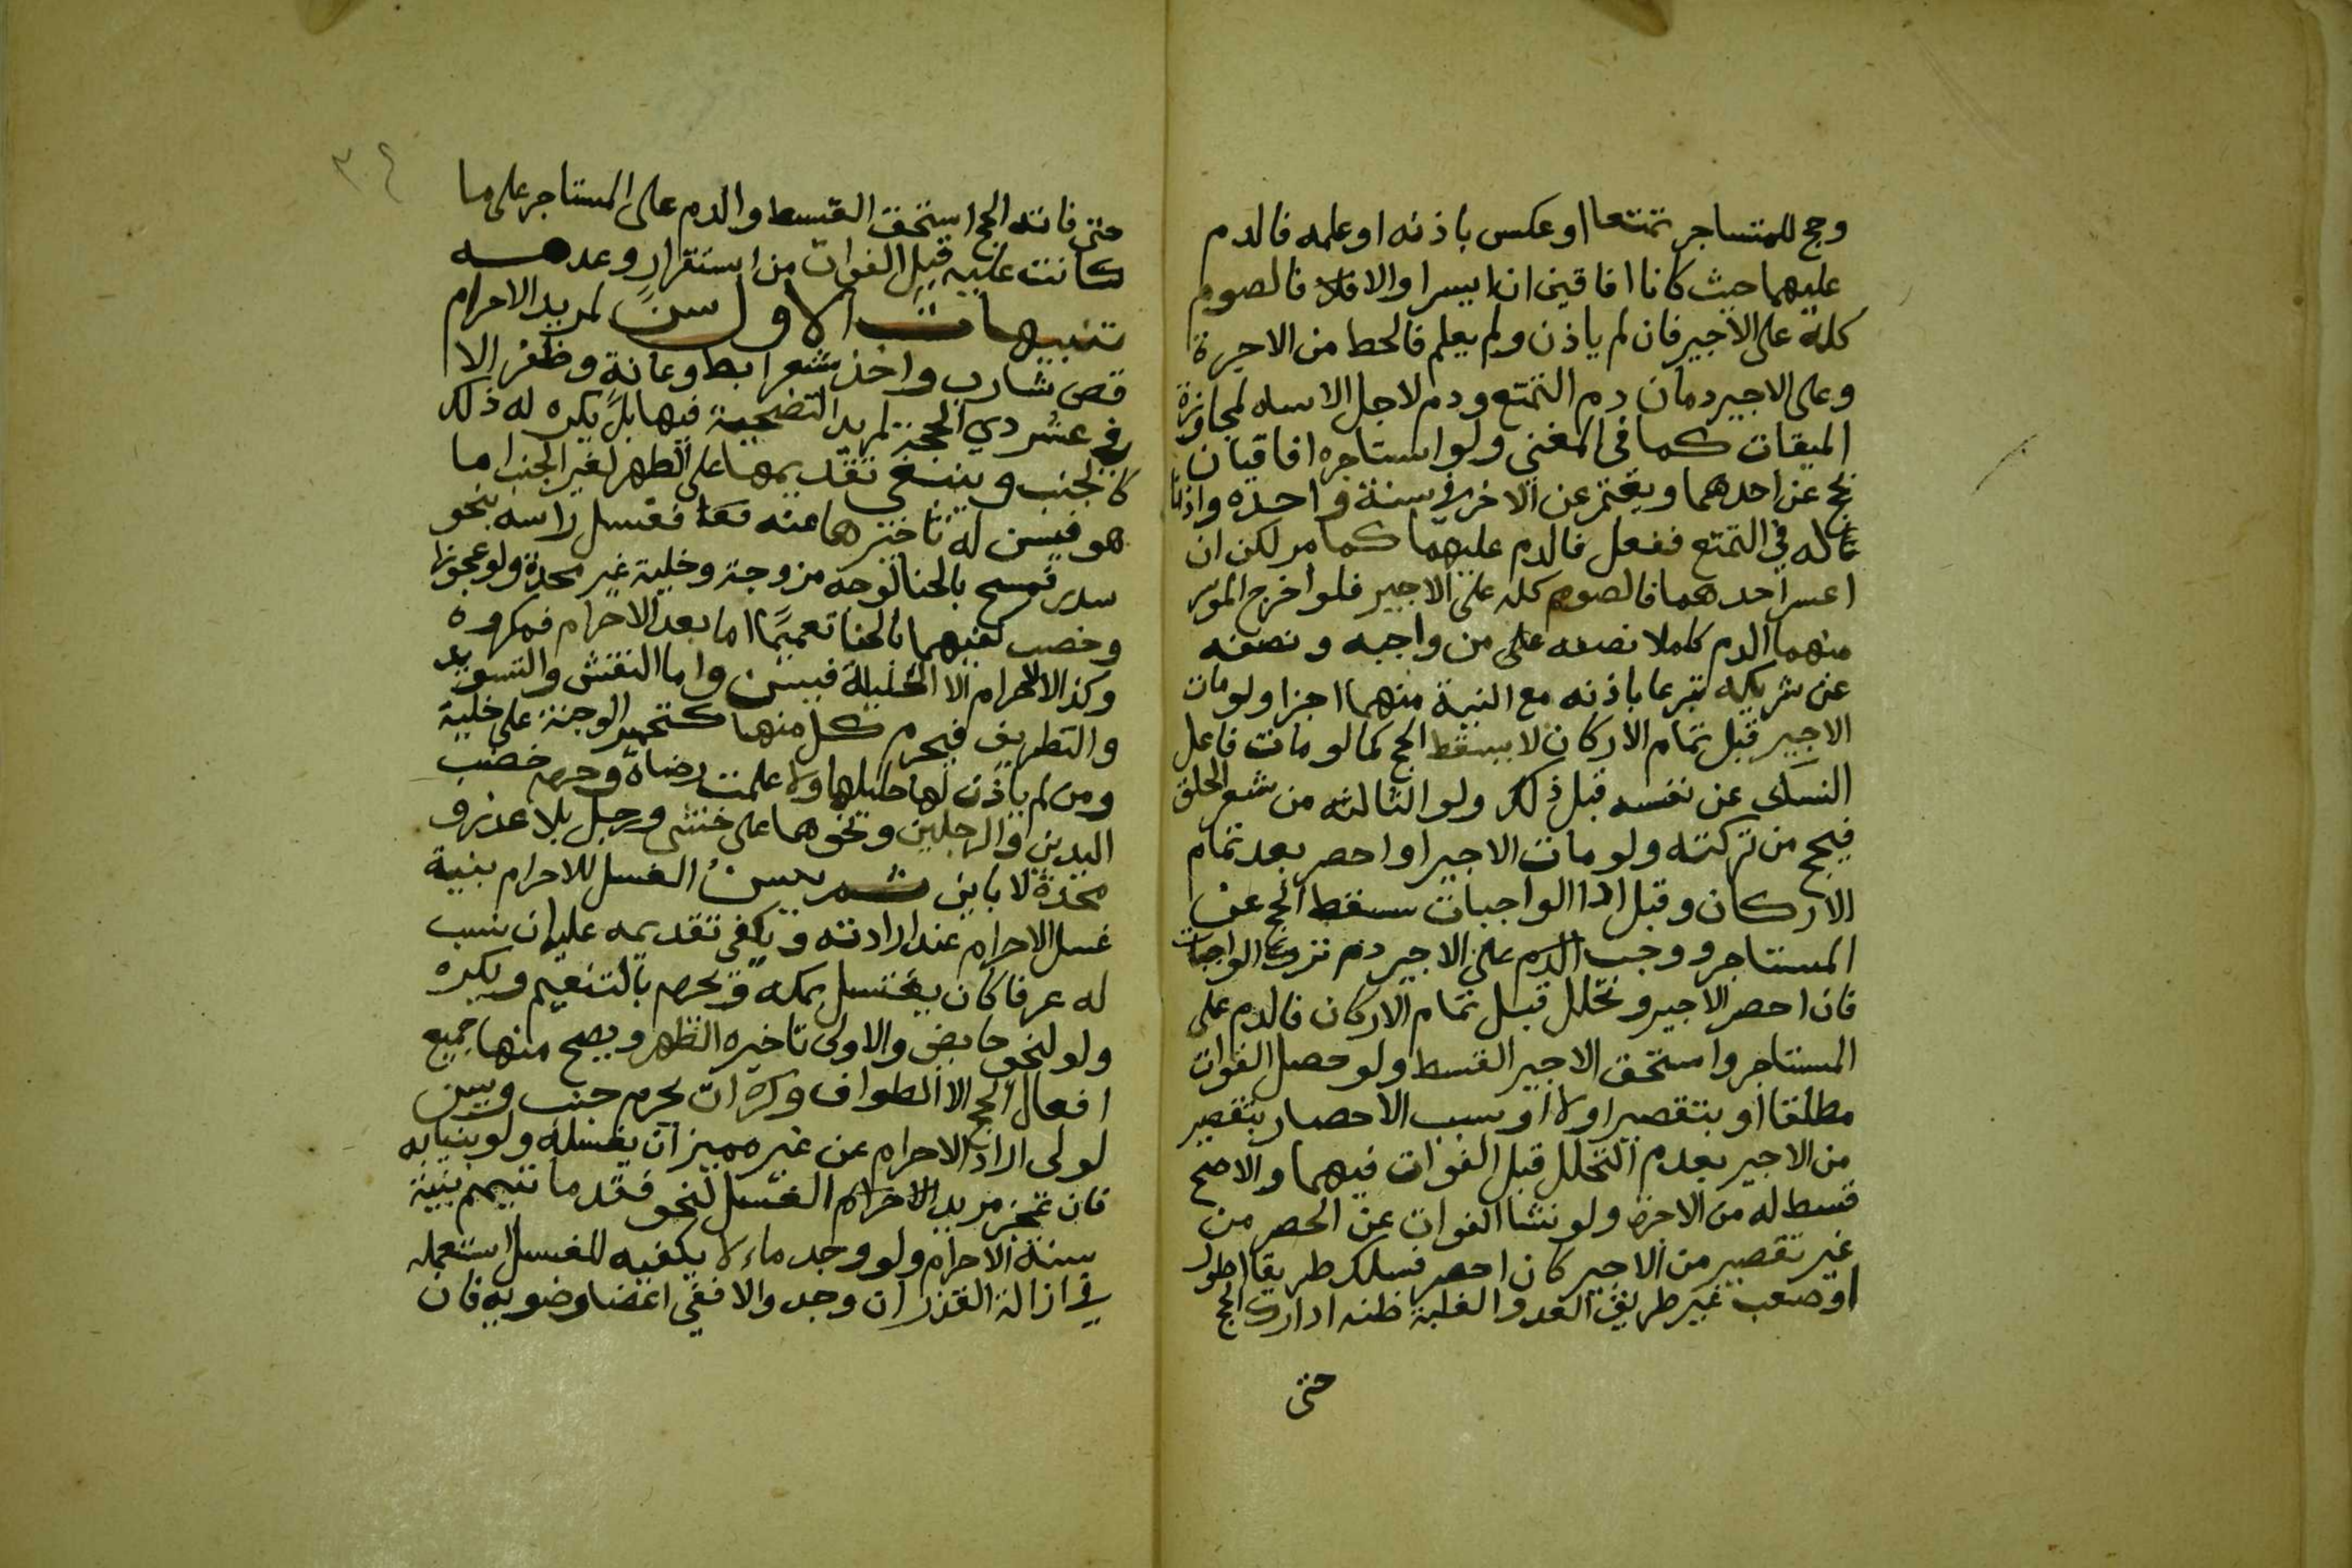 وحج للمتساجر تمتعا او عكس باذنه او علمه فالدم
عليهما حيث كانا افاقين ان ايسرا والا فلا فالصوم
كله على الاجير فان لم ياذن ولم يعلم فالحط من الاجرة
وعلى الاجير دمان دم التمتع ودم لاجل الاساه لمجاوزة
الميقات كما في المغني ولو استاجره افاقيان
يحج عن احدهما ويعتمر عن الاخر في سنة واحده واذنا
له في التمتع ففعل فالدم عليهما كما مر لكن ان
اعسر احدهما فالصوم كله على الاجير فلو اخرج الموسر
منهما الدم كاملا نصفه على من واجبه ونصفه
عن شريكه تبرعا باذنه مع النية منهما اجزا ولو مات
الاجير قبل تمام الاركان لا يسقط الحج كما لو مات فاعل
النسك عن نفسه قبل ذلك ولو الثالثه من شعر الحلق
فيحج من تركته ولو مات الاجير او احصر بعد تمام
الاركان وقبل ادا الواجبات سقط الحج عن
المستاجر ووجب الدم على الاجير دم ترك الواجبات
فان احصر الاجير وتحلل قبل تمام الاركان فالدم على
المستاجر واستحق الاجير القسط ولو حصل الفوات
مطلقا او بتقصير اولا او بسبب الاحصار بتقصير
من الاجير بعدم التحلل قبل الفوات فيهما والاصح
قسط له من الاجره ولو نشا الفوات عن الحصر من
غير تقصير من الاجير كان احصر فسلك طريقا اطول
او صعب غير طريق العدو الغلبة ظنه ادارك الحج
حتى
٣٤
حتى فاته الحج استحق القسط والدم على المستاجر على ما
كانت عليه قبل الفوات من استقرار وعدمه
تنبيهات الاول سن لمريد الاحرام
قص شارب واخذ شعر ابط وعانة وظفر الا
في عشر ذي الحجة لمريد التضحية فيها بل يكره له ذلك
كالجنب وينبغي تقديمها على الطهر لغير الجنب اما
هو فيسن له تاخيرها عنه فغسل راسه بنحو
سدر فمسح بالحنا لوجه مزوجة وخلية غير محدة ولو عجوزا
وخضب كفيهما بالحنا تعميما اما بعد الاحرام فمكروه
وكذا لا للاحرام الا الحليلة فيسن واما النقش والتسويد
والتطريف فيحرم كل منها كتحمير الوجنة على خلية
ومن لم ياذن لها حليلها ولا علمت رضاه وحرم خضب
اليدين والرجلين ونحوهما على خنثى ورجل بلا عذر و
محدة لا باين ثم يسن الغسل للاحرام بنية
غسل الاحرام عند ارادته ويكفي تقديمه عليه ان نسب
له عرفا كان يغتسل بمكه ويحرم بالتنعيم ويكره
ولو لنحو حايض والاولى تاخيره الطهر ويصح منها جميع
افعال الحج الا الطواف وكره ان يحرم جنب ويسن
لولي اراد الاحرام عن غير مميز ان يغسله ولو بنيابه
فان عجز مريد الاحرام الغسل لنحو فقد ما تيمم بنية
سنة الاحرام ولو وجد ماء لا يكفيه للغسل استعمله
في ازالة القذر ان وجد والا ففي اعضا وضويه فان